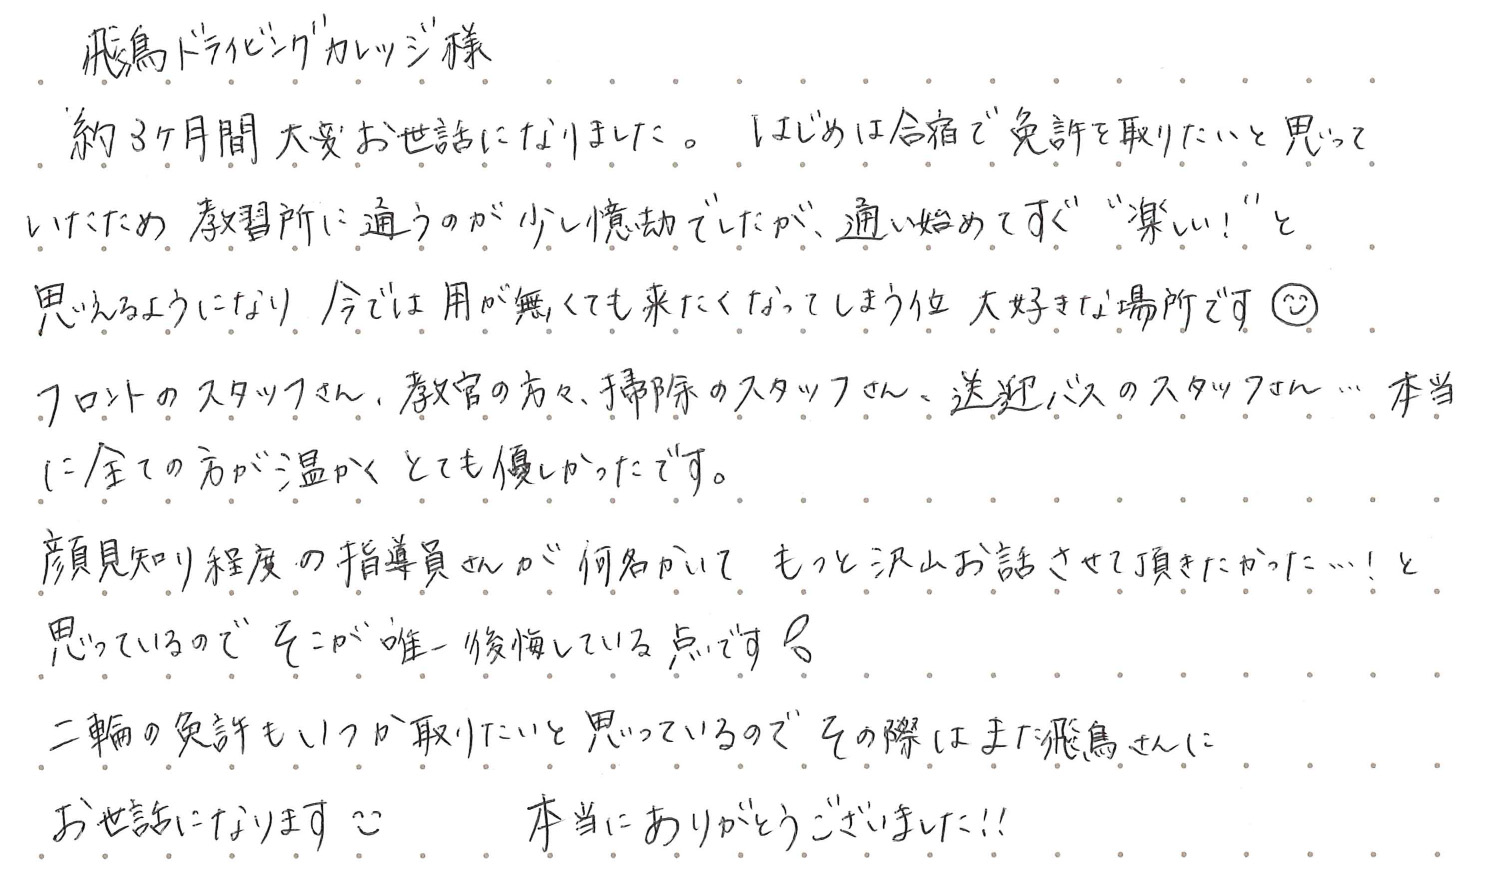 飛鳥ドライビングカレッジ様
約3ケ月間 大変お世話になりました。 はじめは合宿で免許を取りたいと思って
いたため 教習所に通うのが少し憶劫でしたが、通い始めてすぐ "楽しい!" と
思えるようになり 今では用が無くても来たくなってしまう位 大好きな場所です☺
フロントのスタッフさん、教官の方々、掃除のスタッフさん、送迎バスのスタッフさん… 本当
に全ての方が温かくとても優しかったです。
顔見知り程度の指導員さんが何名かいて もっと沢山お話させて頂きたかった…!と
思っているので そこが唯一後悔している点です
二輪の免許もいつか取りたいと思っているので その際はまた飛鳥さんに
お世話になります☺ 本当にありがとうございました!!